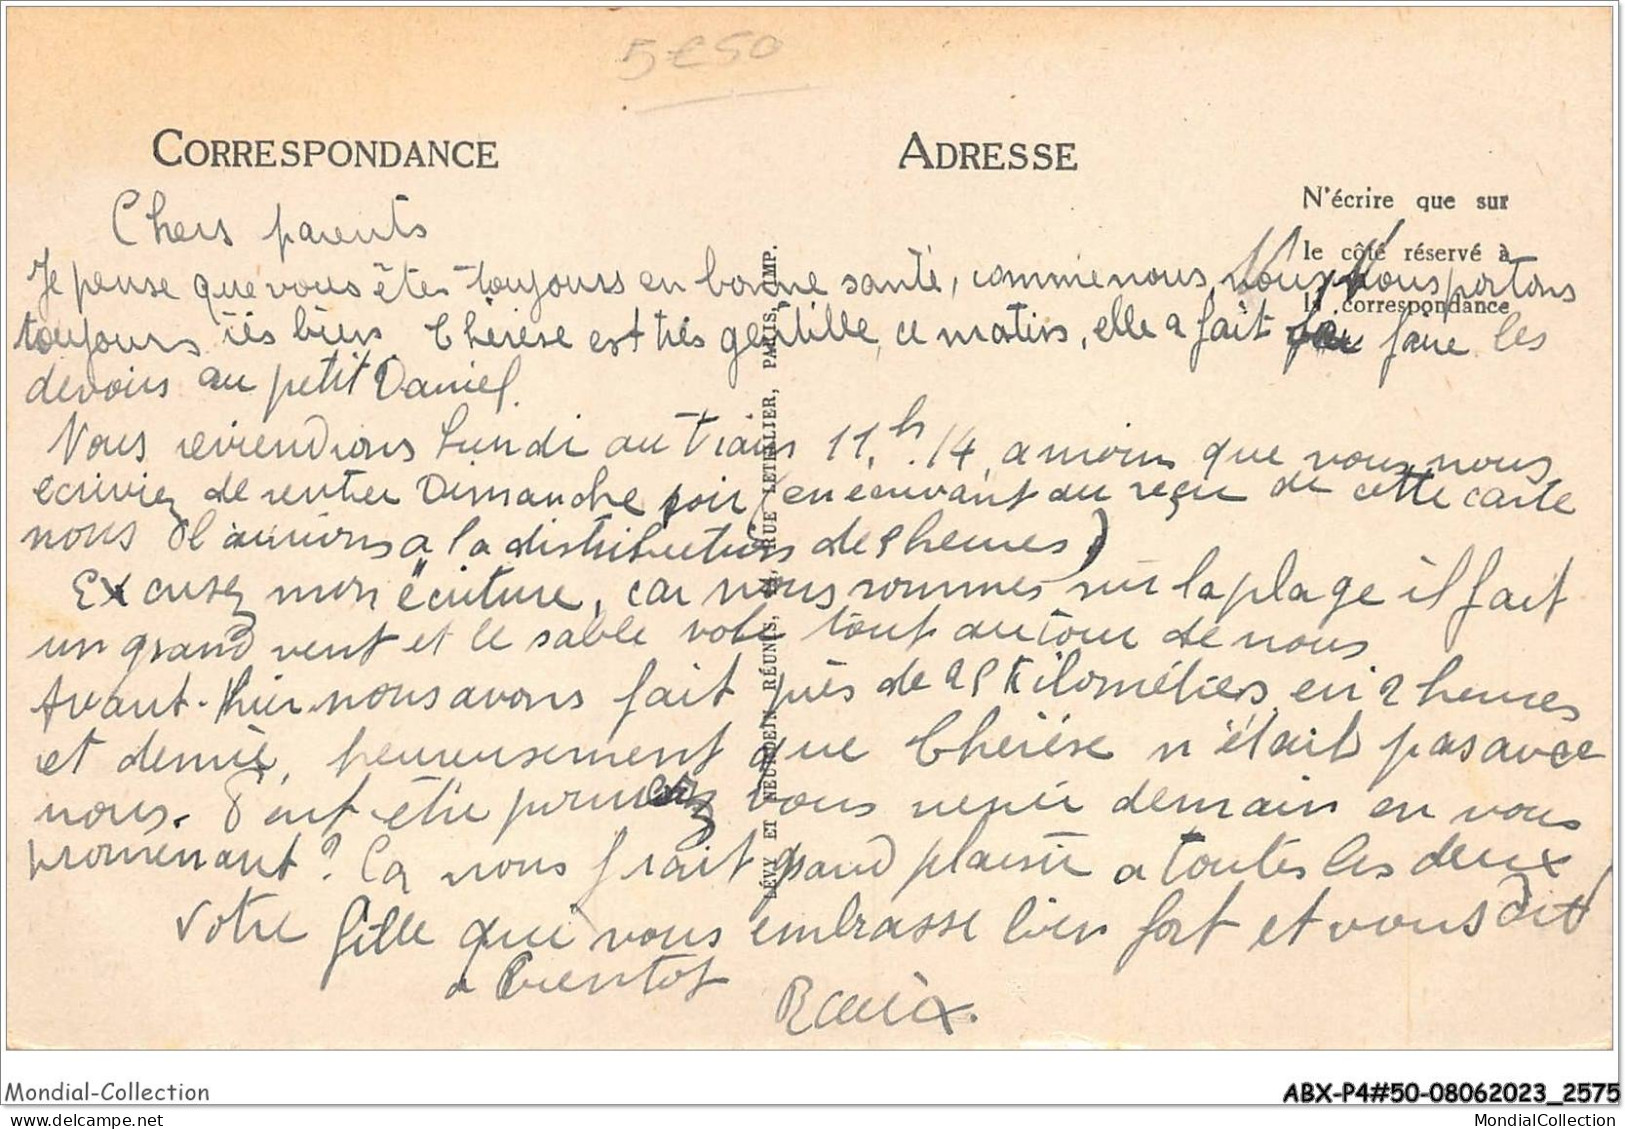 5€50
CORRESPONDANCE
ADRESSE
N'écrire que sur
le côté réservé à
la correspondance
Chers parents
Je pense que vous êtes toujours en bonne santé, comme nous, Nous Nous portons
toujours très bien Thérèse est très gentille, ce matin, elle a fait faire les
devoirs au petit Daniel.
Nous reviendrons Lundi au train 11h 1/4, a moins que vous nous
ecriviez de rentrer Dimanche soir (en ecrivant au reçu de cette carte
nous l'aurions a la distribution de 8 heures)
Excusez mon écriture, car nous sommes sur la plage il fait
un grand vent et le sable vole tout autour de nous
Avant-hier nous avons fait près de 25 Kilomètres en 2 heures
et demie, heureusement que Thérèse n'était pas avec
nous. Peut être pourriez vous venir demain en vous
promenant? Ca nous frait grand plaisir a toutes les deux
Votre fille qui vous embrasse bien fort et vous dit
a bientot
LÉVY ET NEURDEIN RÉUNIS, RUE LETELLIER, PARIS, IMP.
Mondial-Collection
ABX-P4#50-08062023_2575
MondialCollection